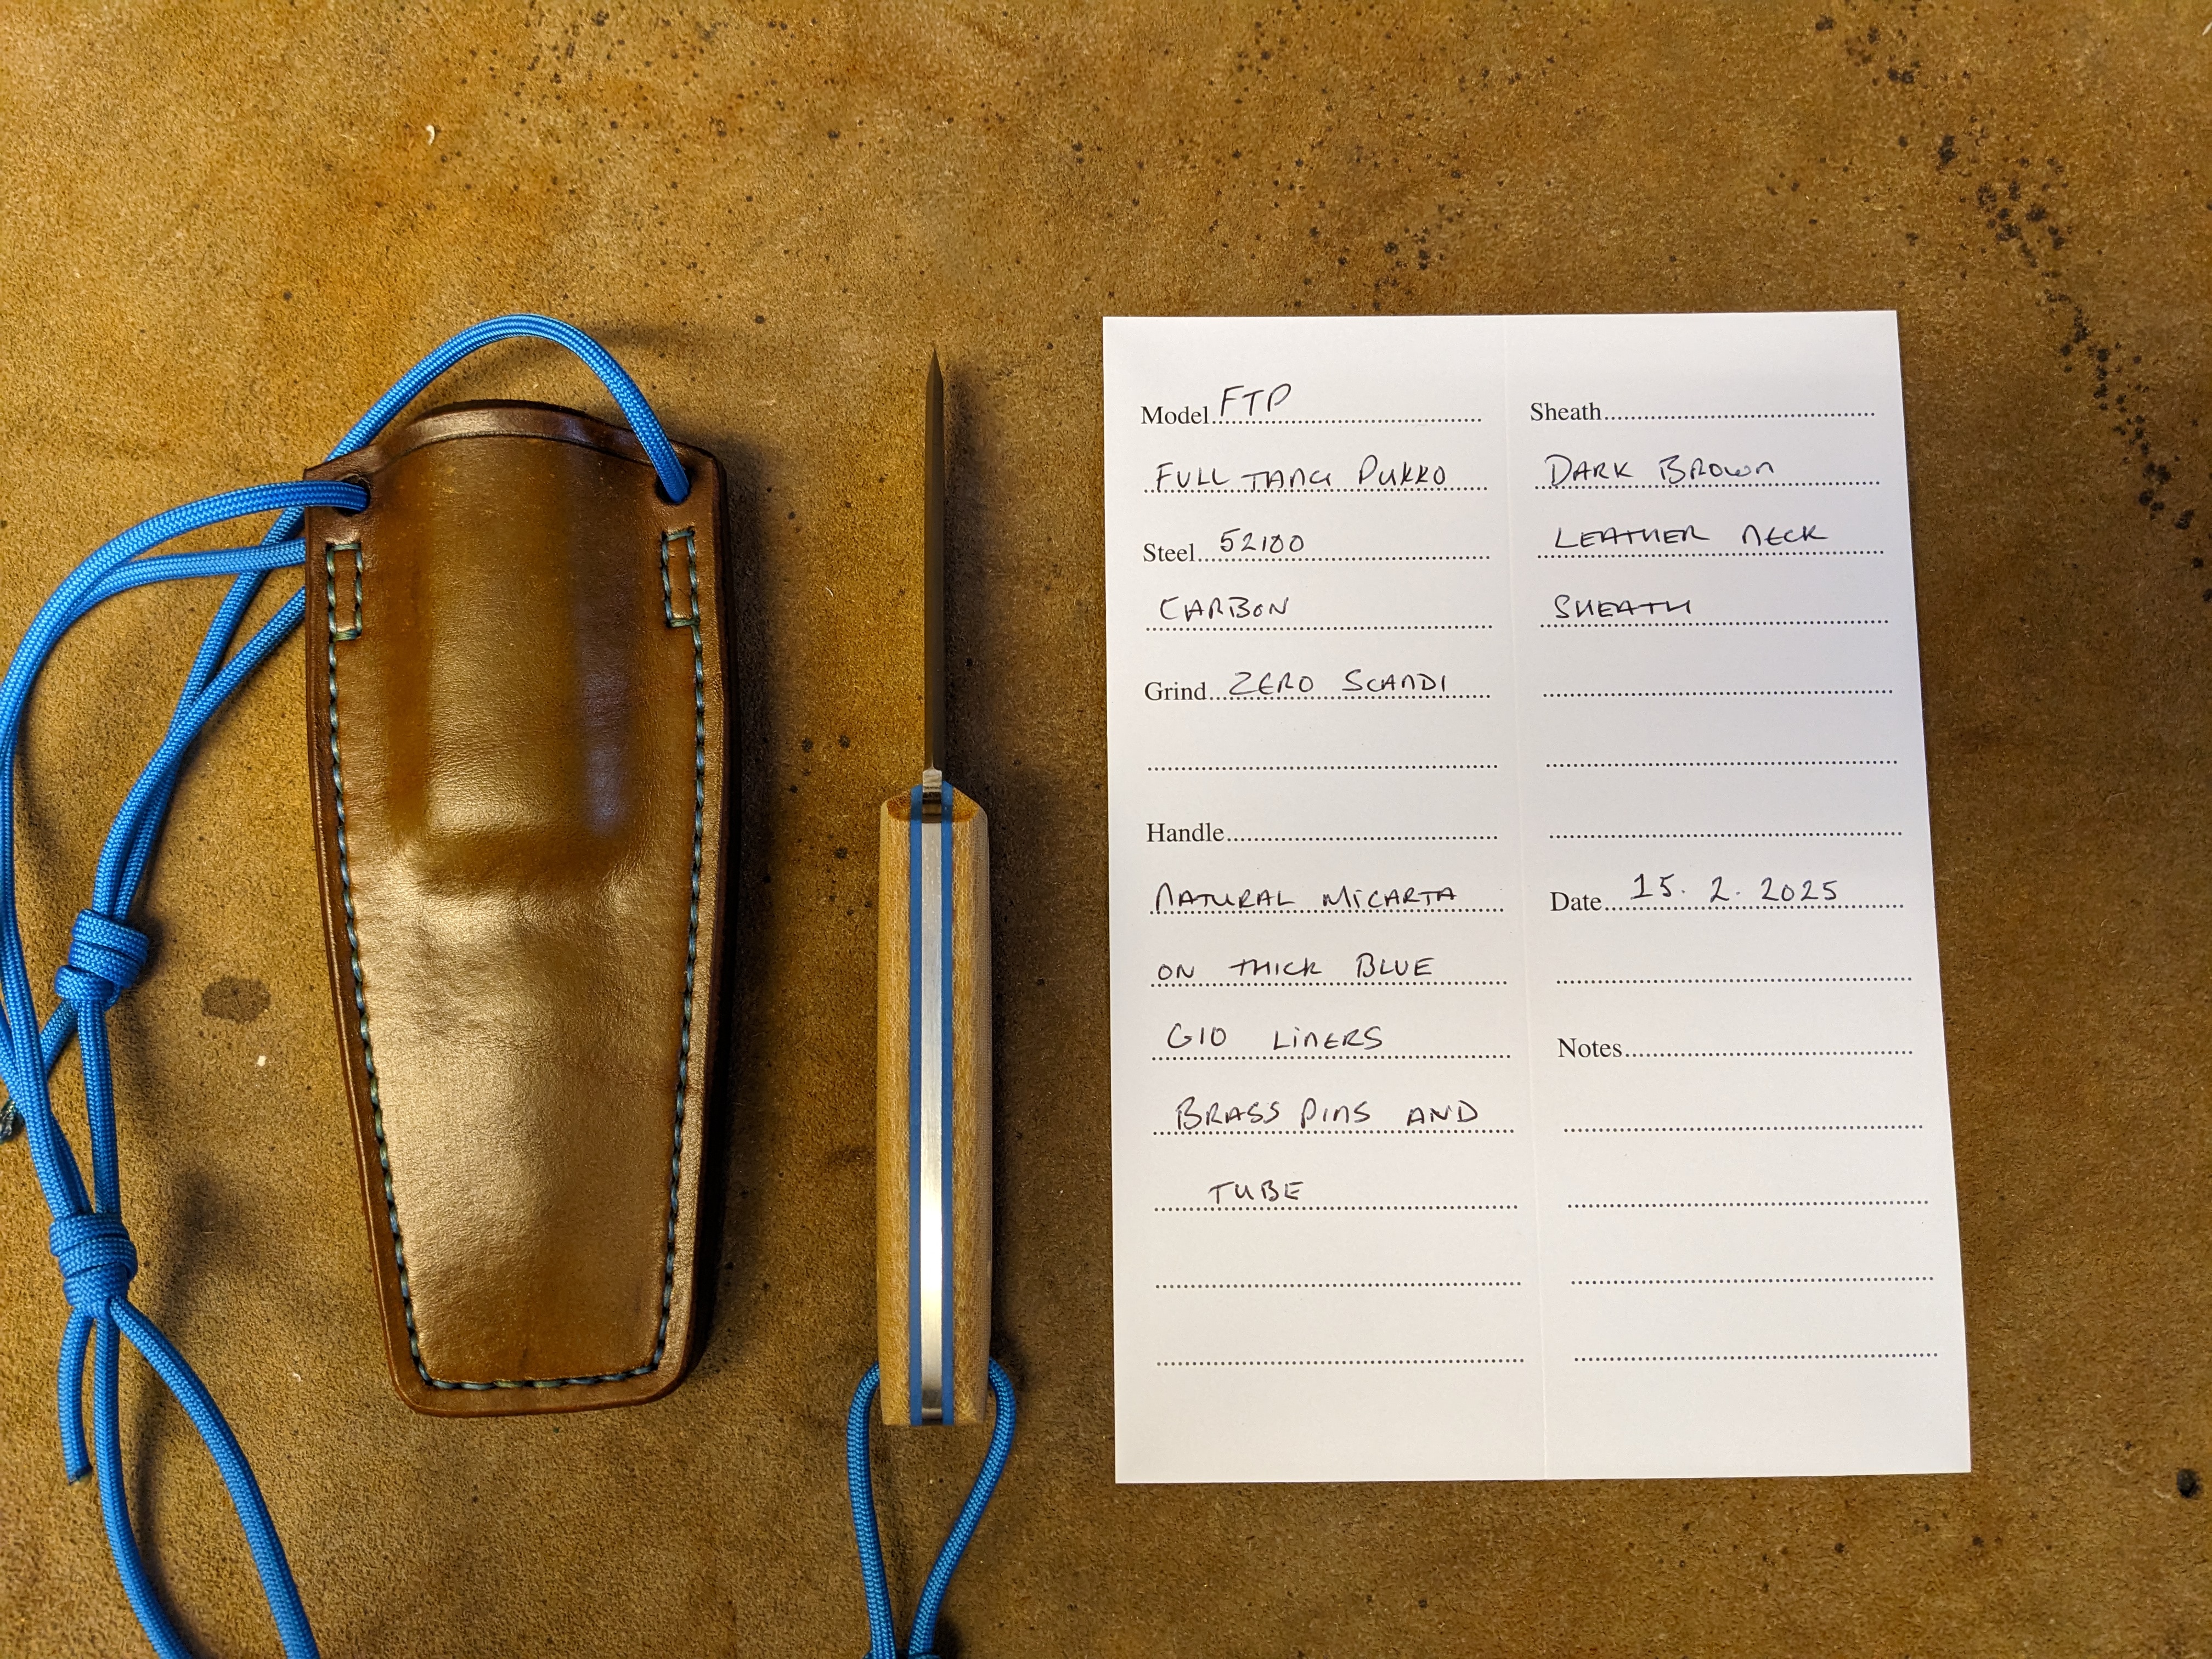 Model FTP
FULL TANG PUKKO
Steel 52100
CARBON
Grind ZERO SCANDI
Handle
NATURAL MICARTA
ON THICK BLUE
G10 LINERS
BRASS PINS AND
TUBE
Sheath
DARK BROWN
LEATHER NECK
SHEATH
Date 15. 2. 2025
Notes